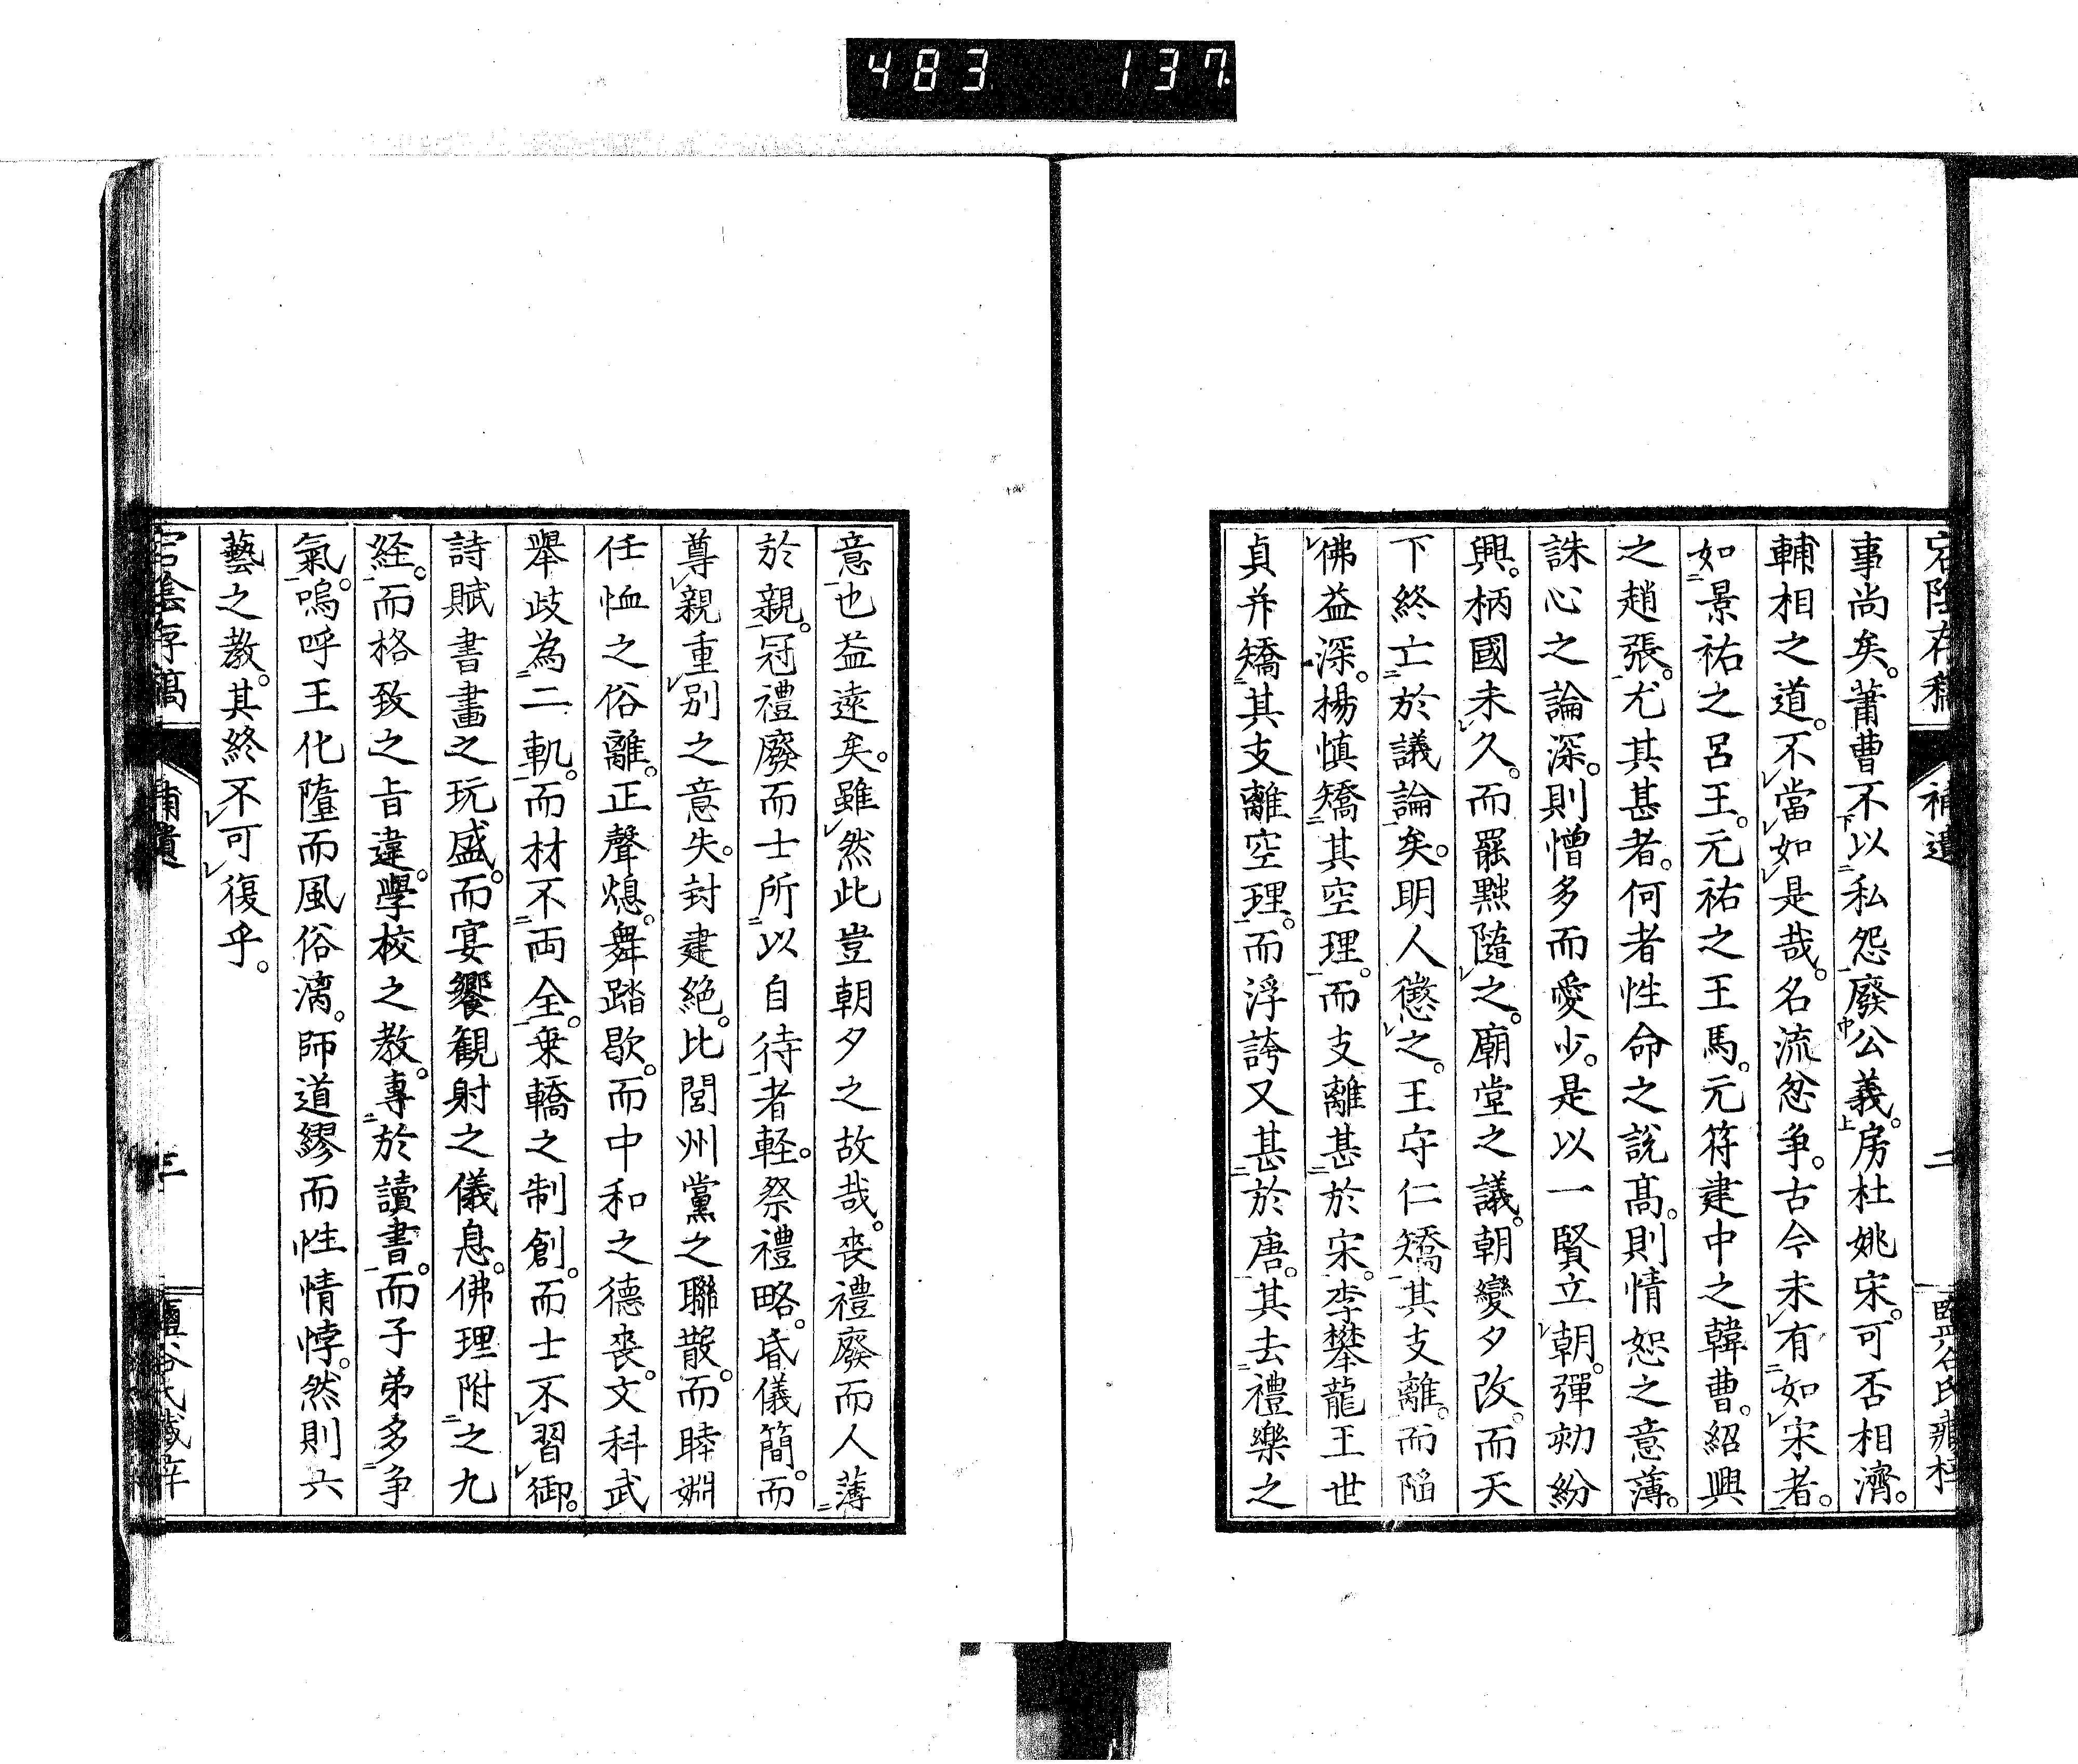 483 137
宕陰存稿 補遺 二
事尚矣。蕭曹不下以二私怨一廢中公義上。房杜姚宋。可否相濟。
輔相之道。不レ當レ如レ是哉。名流忿争。古今未レ有二如レ宋者一。
如二景祐之呂王。元祐之王馬。元符建中之韓曹。紹興
之趙張一。尤其甚者。何者性命之說高。則情恕之意薄。
誅心之論深。則憎多而愛少。是以一賢立レ朝。彈劾紛
興。柄國未レ久。而罷黜隨レ之。廟堂之議。朝變夕改。而天
下終亡二於議論一矣。明人懲レ之。王守仁矯二其支離一。而陷
レ佛益深。楊慎矯二其空理一。而支離甚二於宋一。李攀龍王世
貞并矯二其支離空理一。而浮誇又甚二於唐一。其去二禮樂之
意一也益遠矣。雖レ然此豈朝夕之故哉。喪禮廢而人薄二
於親一。冠禮廢而士所二以自待一者軽。祭禮略。昏儀簡。而
尊レ親重レ別之意失。封建絶。比閭州黨之聯散。而睦婣
任恤之俗離。正聲熄。舞踏歇。而中和之德喪。文科武
舉歧為二二軌一。而材不二両全一。乗轎之制創。而士不レ習レ御。
詩賦書畫之玩盛。而宴饗観射之儀息。佛理附二之九
経一。而格致之旨違。學校之教。專二於讀書一。而子弟多二争
氣一。嗚呼王化墮而風俗漓。師道繆而性情悖。然則六
藝之教。其終不レ可レ復乎。
宕陰存稿 補遺 三